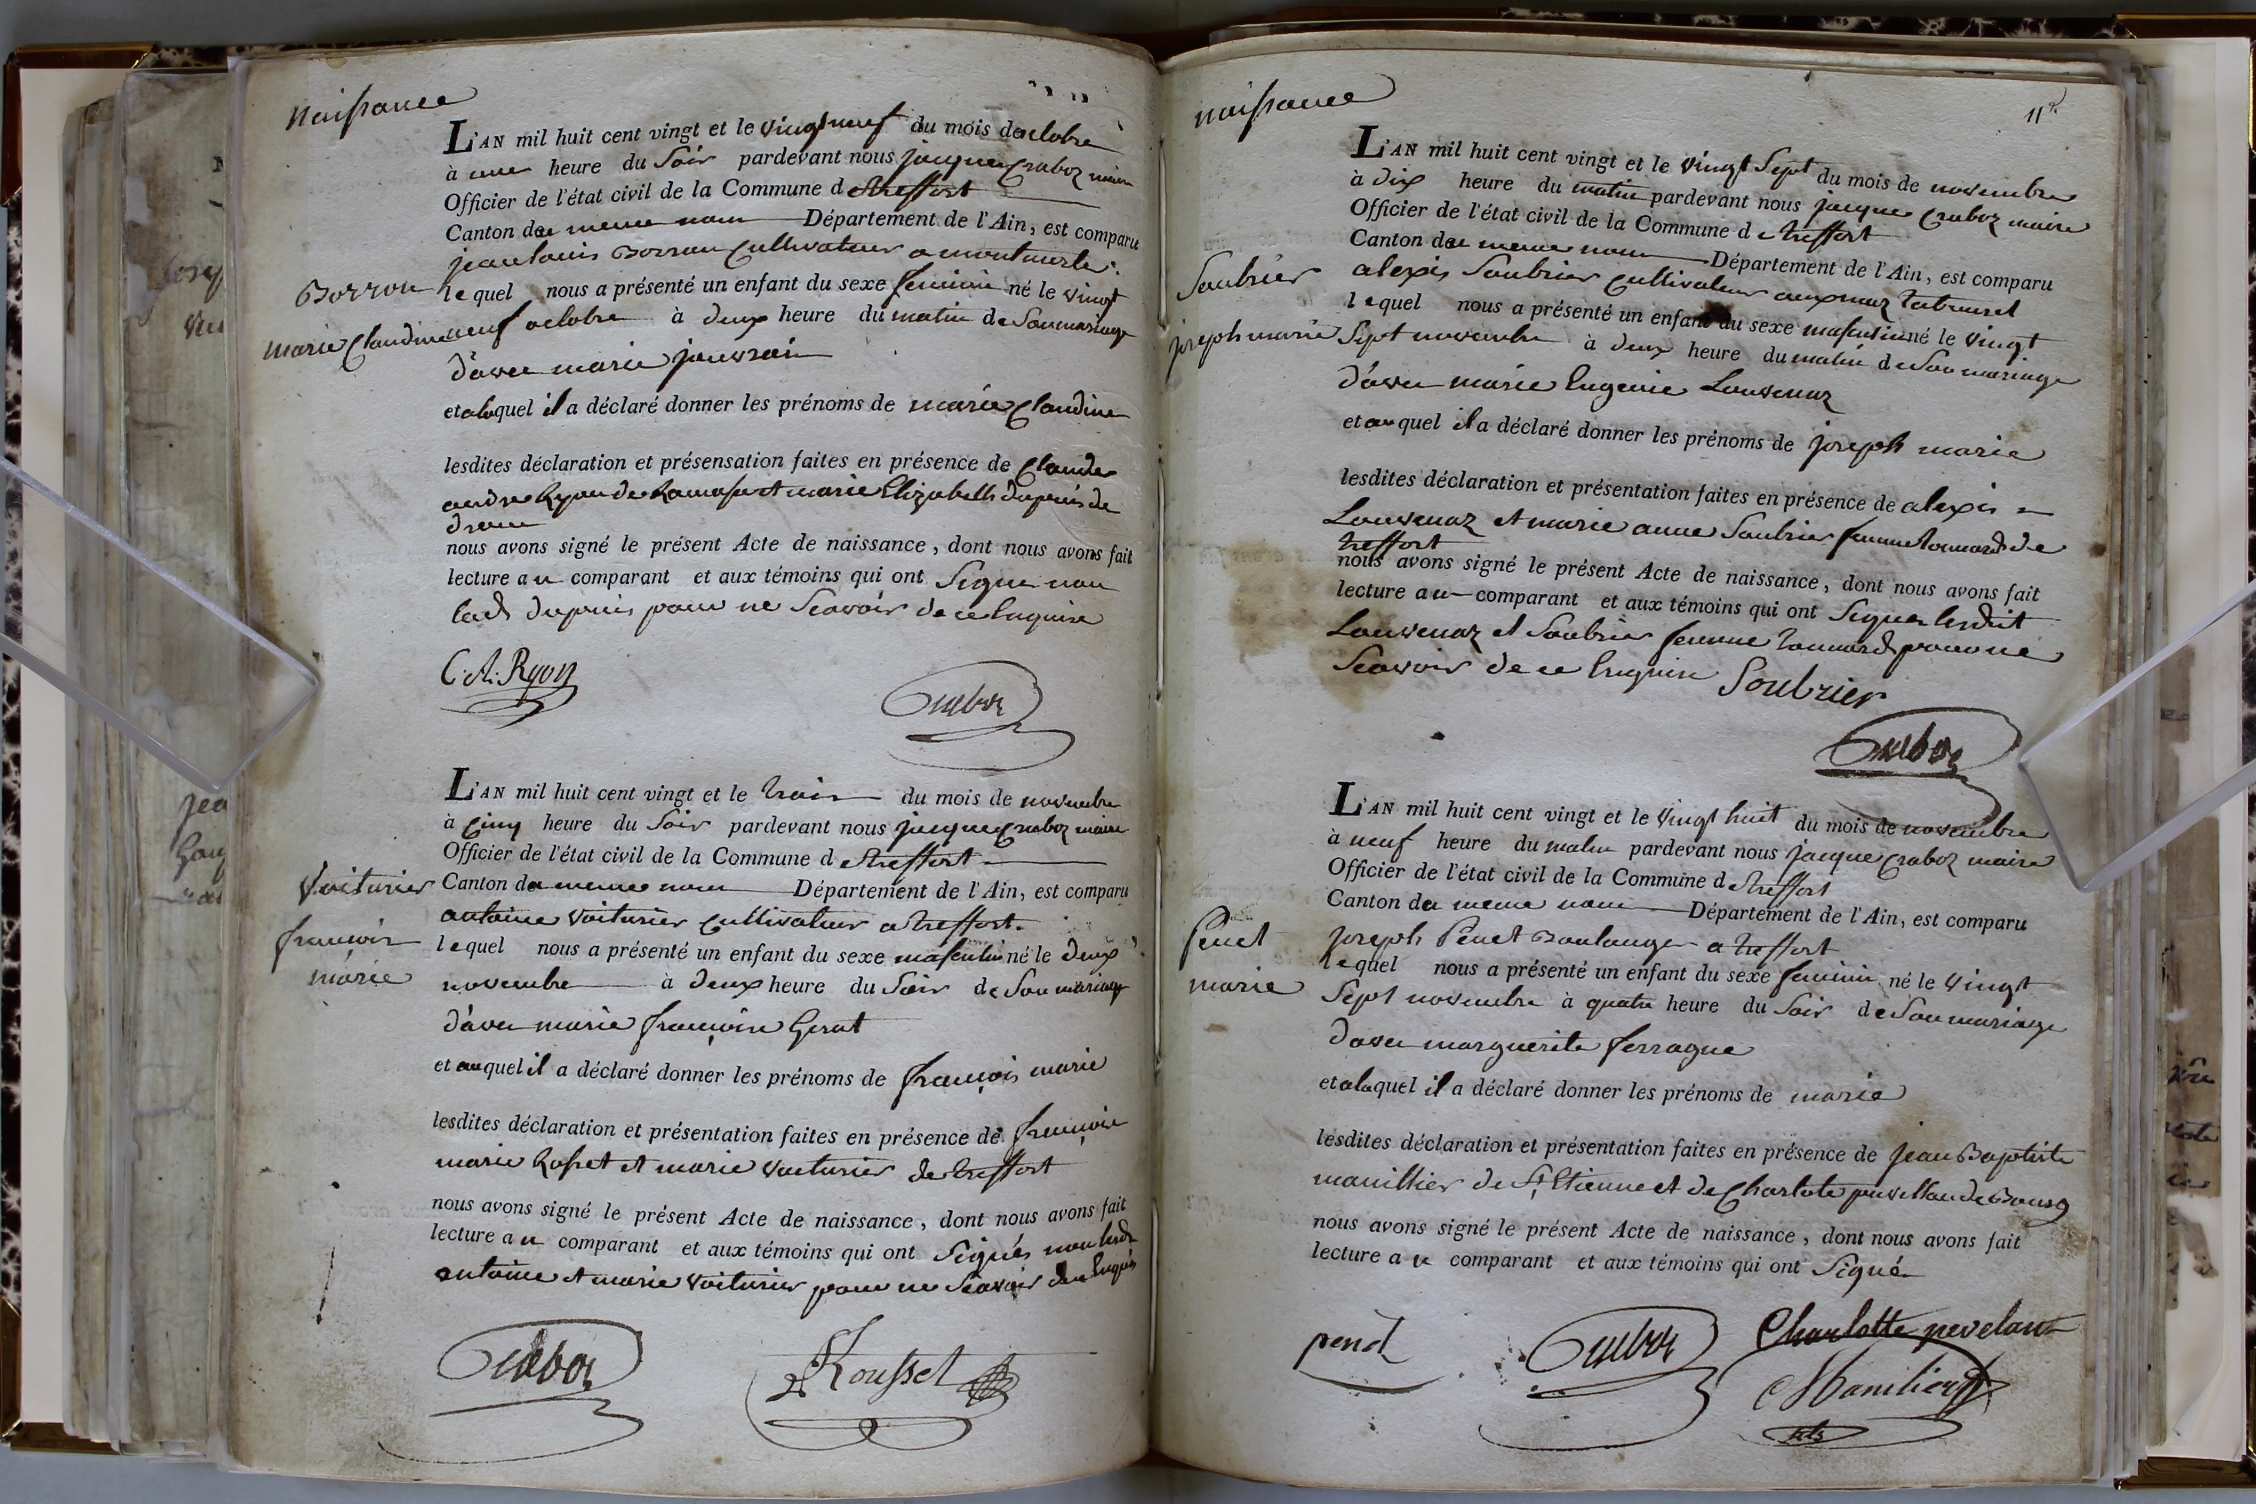 naissance
L'AN mil huit cent vingt et le vingt neuf du mois doctobre
à une heure du Soir pardevant nous jacque Craboz maire
Officier de l'état civil de la Commune d treffort
Canton du meme nom Département de l'Ain, est comparu
jean louis Borron Cultivateur a montmerle
Borron
lequel nous a présenté un enfant du sexe feminin né le vingt
marie Claudine
neuf octobre à deux heure du matin de Son mariage
d'avec marie jauvrain
et alaquel il a déclaré donner les prénoms de marie Claudine
lesdites déclaration et présensation faites en présence de Claude
andre Ryon de Ramasse et marie Elizabeth dupuis de
drom
nous avons signé le présent Acte de naissance, dont nous avons fait
lecture au comparant et aux témoins qui ont Signe non
lad dupuis pour ne Scavoir de ce Enquise
C. A. Ryon
Craboz
L'AN mil huit cent vingt et le trois du mois de novembre
à Cinq heure du Soir pardevant nous jacque Craboz maire
Officier de l'état civil de la Commune d treffort
Voiturier
Canton du meme nom Département de l'Ain, est comparu
antoine Voiturier Cultivateur a treffort
françois
marie
lequel nous a présenté un enfant du sexe masculin né le deux
novembre à deux heure du Soir de Son mariage
d'avec marie françoise Gerat
et auquel il a déclaré donner les prénoms de françois marie
lesdites déclaration et présentation faites en présence de françois
marie Rosset et marie Voiturier de treffort
nous avons signé le présent Acte de naissance, dont nous avons fait
lecture au comparant et aux témoins qui ont Signés non lesd
antoine et marie Voiturier pour ne Scavoir de ce Enquis
Craboz
Rousset
naissance
L'AN mil huit cent vingt et le vingt Sept du mois de novembre
à dix heure du matin pardevant nous jacque Craboz maire
Officier de l'état civil de la Commune d treffort
Canton du meme nom Département de l'Ain, est comparu
Soubrier
alexis Soubrier Cultivateur aux
lequel nous a présenté un enfant du sexe masculin né le vingt
joseph marie
Sept novembre à deux heure du matin de Son mariage
d'avec marie Eugenie Louvenaz
et auquel il a déclaré donner les prénoms de joseph marie
lesdites déclaration et présentation faites en présence de alexis
Louvenaz et marie anne Soubrier femme tomard de
treffort
nous avons signé le présent Acte de naissance, dont nous avons fait
lecture au comparant et aux témoins qui ont Signer lesdit
Louvenaz et Soubrier femme tomard pour ne
Scavoir de ce Enquise Soubrier
Craboz
L'AN mil huit cent vingt et le vingt huit du mois de novembre
à neuf heure du matin pardevant nous jacque Craboz maire
Officier de l'état civil de la Commune d treffort
Canton du meme nom Département de l'Ain, est comparu
Penet
joseph Penet Boulanger a treffort
marie
lequel nous a présenté un enfant du sexe feminin né le vingt
Sept novembre à quatre heure du Soir de Son mariage
d'avec marguerite ferrague
et alaquel il a déclaré donner les prénoms de marie
lesdites déclaration et présentation faites en présence de jean Baptiste
manillier de St Etienne et de Charlote puvelland de Bourg
nous avons signé le présent Acte de naissance, dont nous avons fait
lecture au comparant et aux témoins qui ont Signé
penet
Craboz
Charlotte pevelant
Manilier
fils